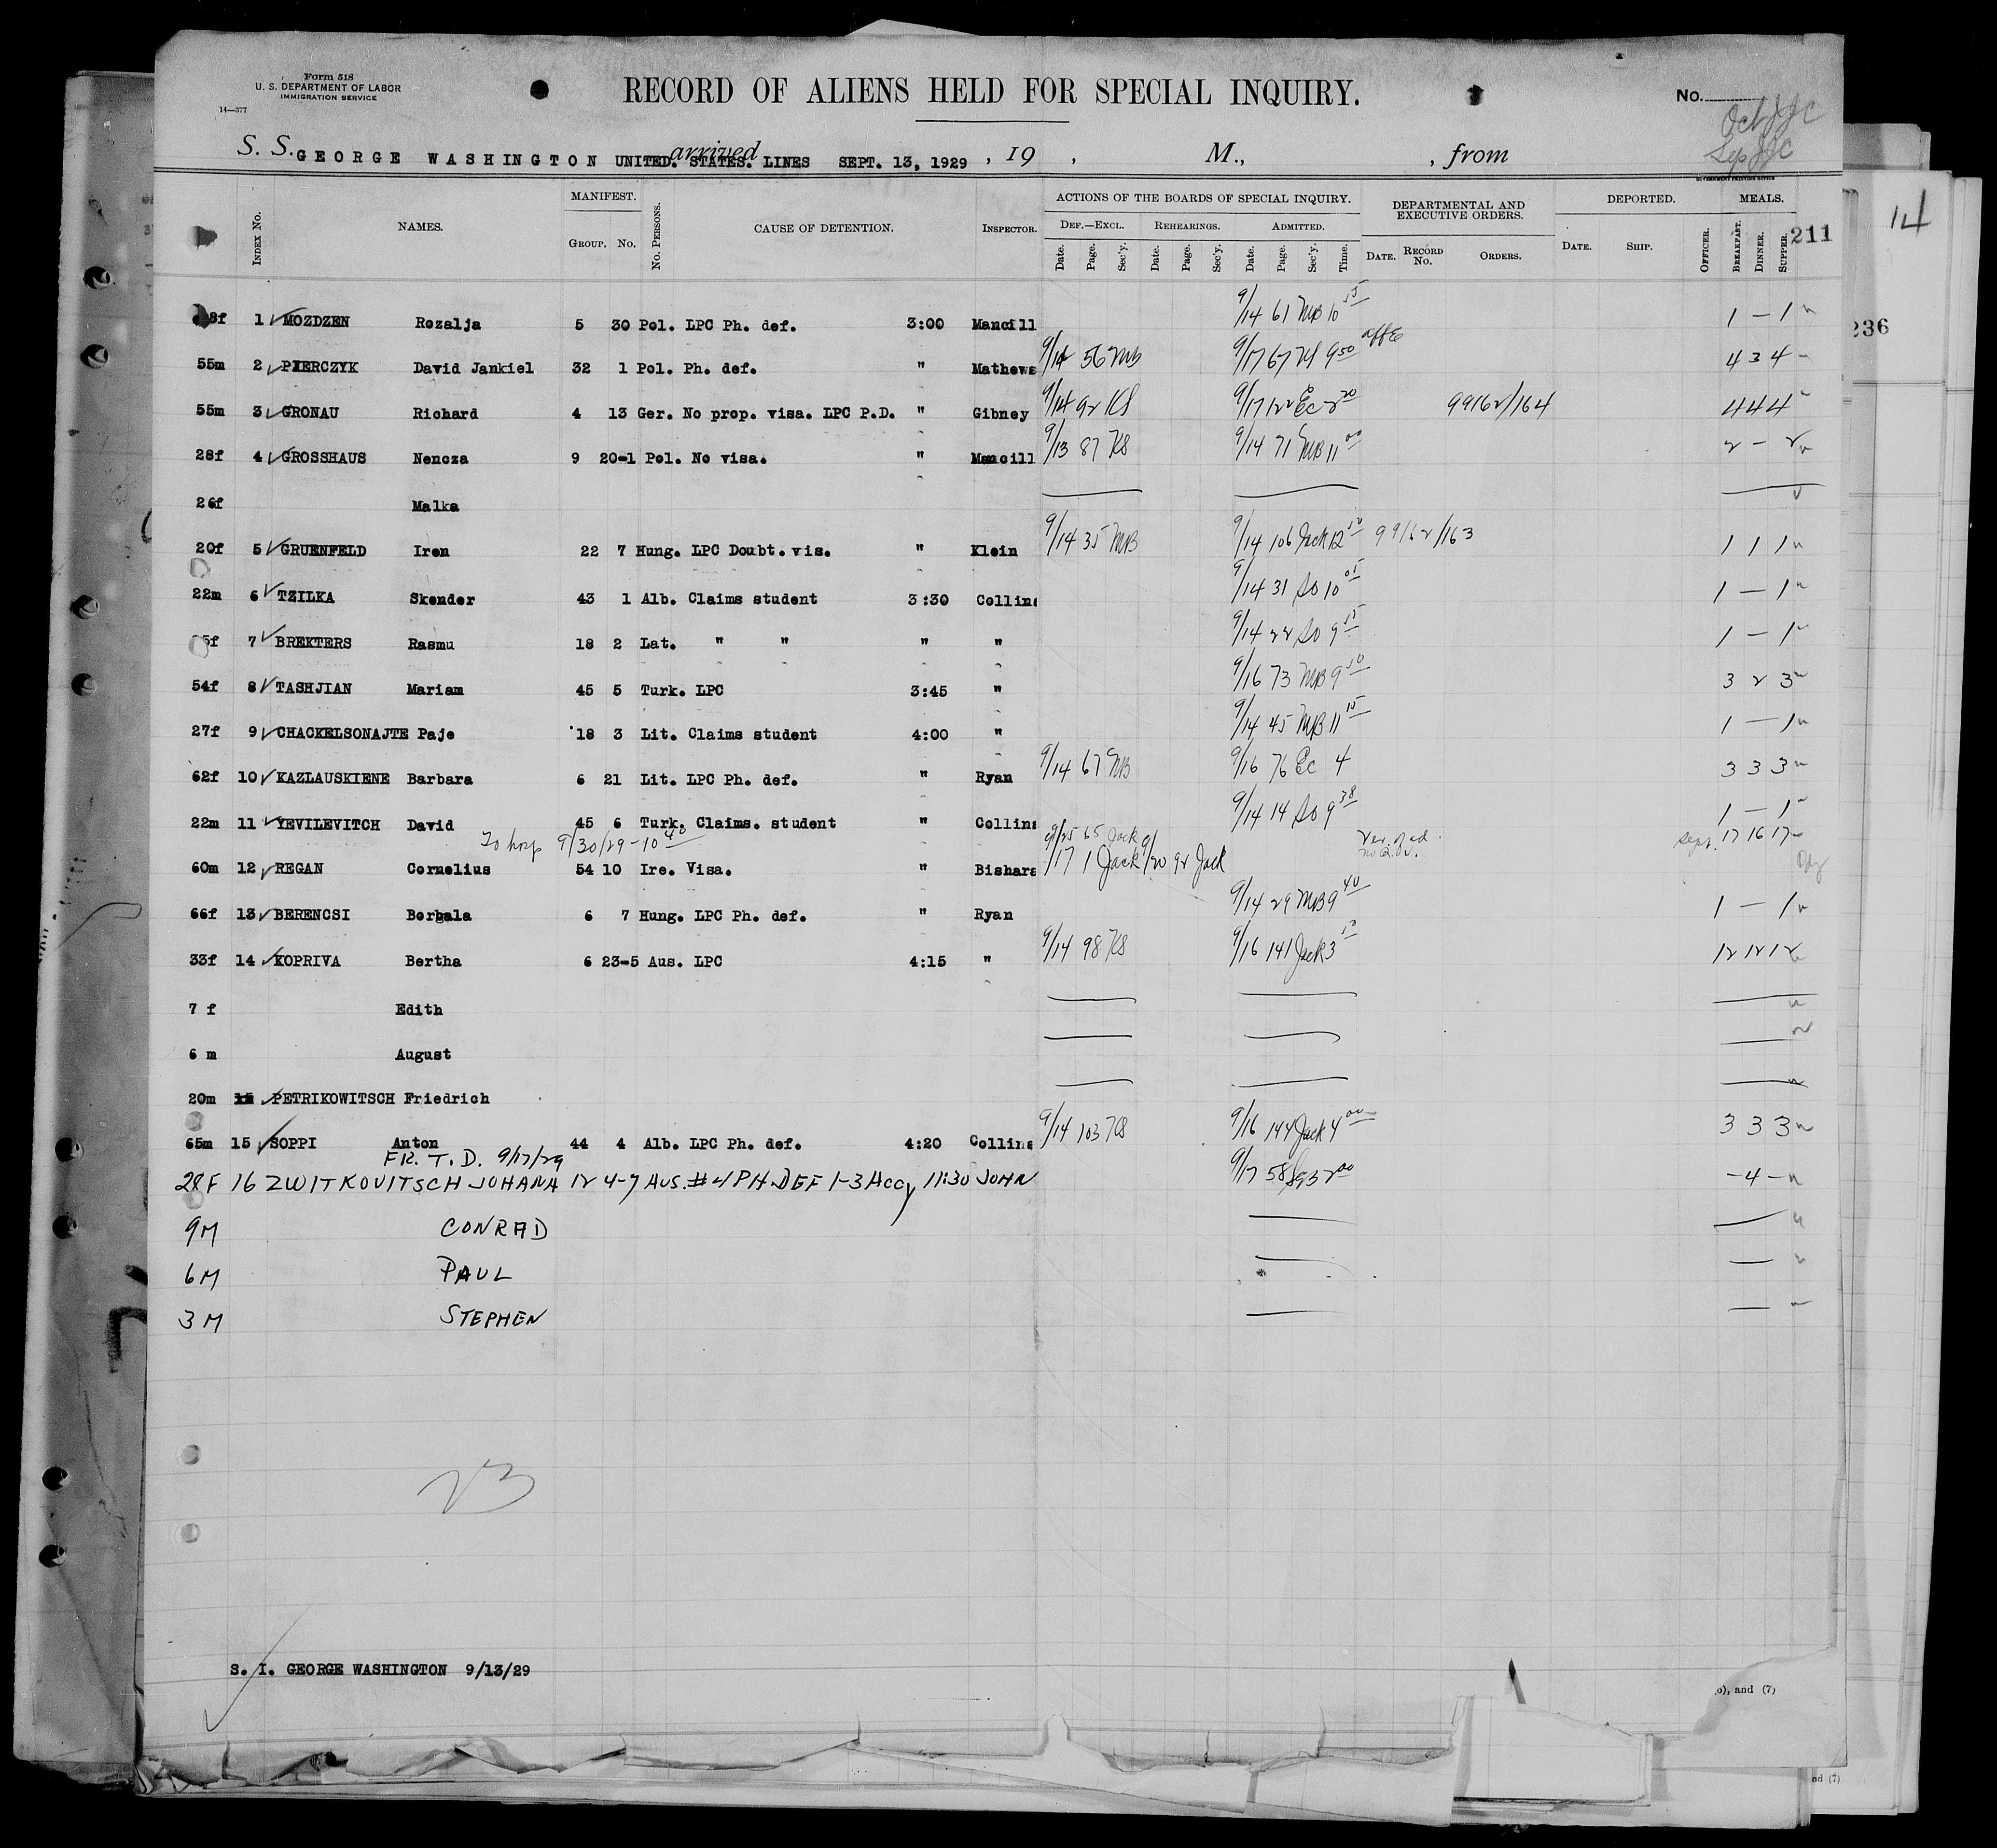 Form 518
U. S. DEPARTMENT OF LABOR
IMMIGRATION SERVICE
14—377
RECORD OF ALIENS HELD FOR SPECIAL INQUIRY.
No.
S. S. GEORGE WASHINGTON UNITED. STATES. LINES arrived SEPT. 13, 1929 , 19 , M., , from
GOVERNMENT PRINTING OFFICE
14
211
236
INDEX No. NAMES. MANIFEST. GROUP. No. No. PERSONS. CAUSE OF DETENTION. INSPECTOR. ACTIONS OF THE BOARDS OF SPECIAL INQUIRY. DEPARTMENTAL AND EXECUTIVE ORDERS. DEPORTED. MEALS.
DEF.—EXCL. REHEARINGS. ADMITTED.
Date. Page. Sec'y. Date. Page. Sec'y. Date. Page. Sec'y. Time. DATE. RECORD No. ORDERS. DATE. SHIP. OFFICER. BREAKFAST. DINNER. SUPPER.
8f 1 MOZDZEN Rozalja 5 30 Pol. LPC Ph. def. 3:00 Mancill 9/14 61 MB 10 15 1 — 1
55m 2 PIERCZYK David Jankiel 32 1 Pol. Ph. def. " Mathews 9/14 56 MB 9/17 67 9 50 4 3 4
55m 3 GRONAU Richard 4 13 Ger. No prop. visa. LPC P.D. " Gibney 9/14 92 KS 9/17 122 Ec 2 20 99162/164 4 4 4
28f 4 GROSSHAUS Nencza 9 20-1 Pol. No visa. " Mancill 9/13 87 KS 9/14 71 MB 11 00 2 — 2
26f Malka
20f 5 GRUENFELD Iren 22 7 Hung. LPC Doubt. vis. " Klein 9/14 35 MB 9/14 106 Jack 12 50 99162/163 1 1 1
22m 6 TZILKA Skender 43 1 Alb. Claims student 3:30 Collins 9/14 31 SO 10 05 1 — 1
5f 7 BREKTERS Rasmu 18 2 Lat. " " " " 9/14 22 SO 9 55 1 — 1
54f 8 TASHJIAN Mariam 45 5 Turk. LPC 3:45 " 9/16 73 MB 9 50 3 2 3
27f 9 CHACKELSONAJTE Paje 18 3 Lit. Claims student 4:00 " 9/14 45 MB 11 15 1 — 1
62f 10 KAZLAUSKIENE Barbara 6 21 Lit. LPC Ph. def. " Ryan 9/14 67 MB 9/16 76 Ec 4 3 3 3
22m 11 YEVILEVITCH David 45 6 Turk. Claims. student " Collins 9/14 14 SO 9 38 1 — 1
To hosp 9/30/29 - 10 40 9/25 65 Jack Sept. 17 16 17
60m 12 REGAN Cornelius 54 10 Ire. Visa. " Bishara 9/17 1 Jack 9/20 92 Jack
66f 13 BERENCSI Borbala 6 7 Hung. LPC Ph. def. " Ryan 9/14 29 MB 9 40 1 — 1
33f 14 KOPRIVA Bertha 6 23-5 Aus. LPC 4:15 " 9/14 98 KS 9/16 141 Jack 3 50 12 12 12
7 f Edith
6 m August
20m 15 PETRIKOWITSCH Friedrich
65m 15 SOPPI Anton 44 4 Alb. LPC Ph. def. 4:20 Collins 9/14 103 KS 9/16 144 Jack 4 00 3 3 3
FR. T. D. 9/17/29
28F 16 ZWITKOVITSCH JOHANA 12 4-7 AUS. #4 PH. DEF 1-3 Accy 11:30 JOHN 9/17 58 2 00 — 4 —
9M CONRAD
6M PAUL
3M STEPHEN
23
S. I. GEORGE WASHINGTON 9/13/29
o), and (7)
nd (7)